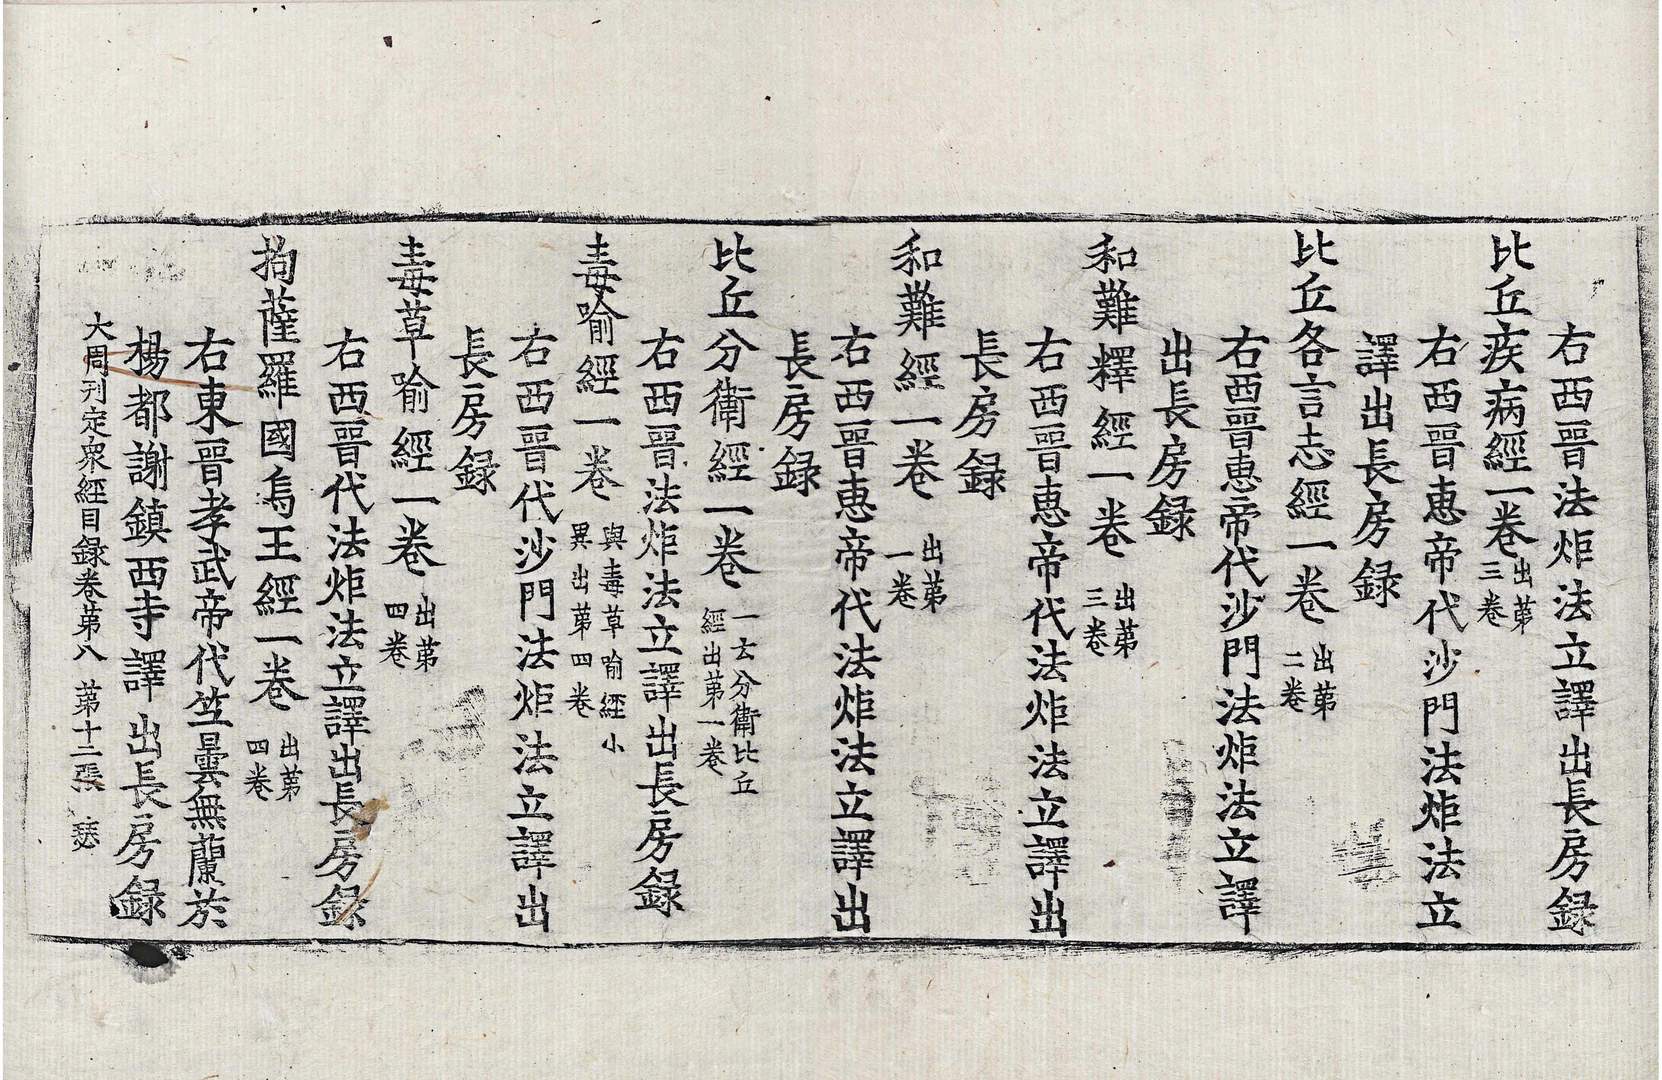 右西晉法炬法立譯出長房録
比丘疾病經一卷出苐三卷
右西晉恵帝代沙門法炬法立
譯出長房録
比丘各言志經一卷出苐二卷
右西晉恵帝代沙門法炬法立譯
出長房録
和難釋經一卷出苐三卷
右西晉恵帝代法炬法立譯出
長房録
和難經一卷出苐一卷
右西晉恵帝代法炬法立譯出
長房録
比丘分衛經一卷一云分衛比丘經出苐一卷
右西晉法炬法立譯出長房録
毒喻經一卷與毒草喻經小異出苐四卷
右西晉代沙門法炬法立譯出
長房録
毒草喻經一卷出苐四卷
右西晉代法炬法立譯出長房録
拘薩羅國烏王經一卷出苐四卷
右東晉孝武帝代竺曇無蘭於
楊都謝鎮西寺譯出長房録
大周刊定衆經目録卷苐八 苐十二張 瑟